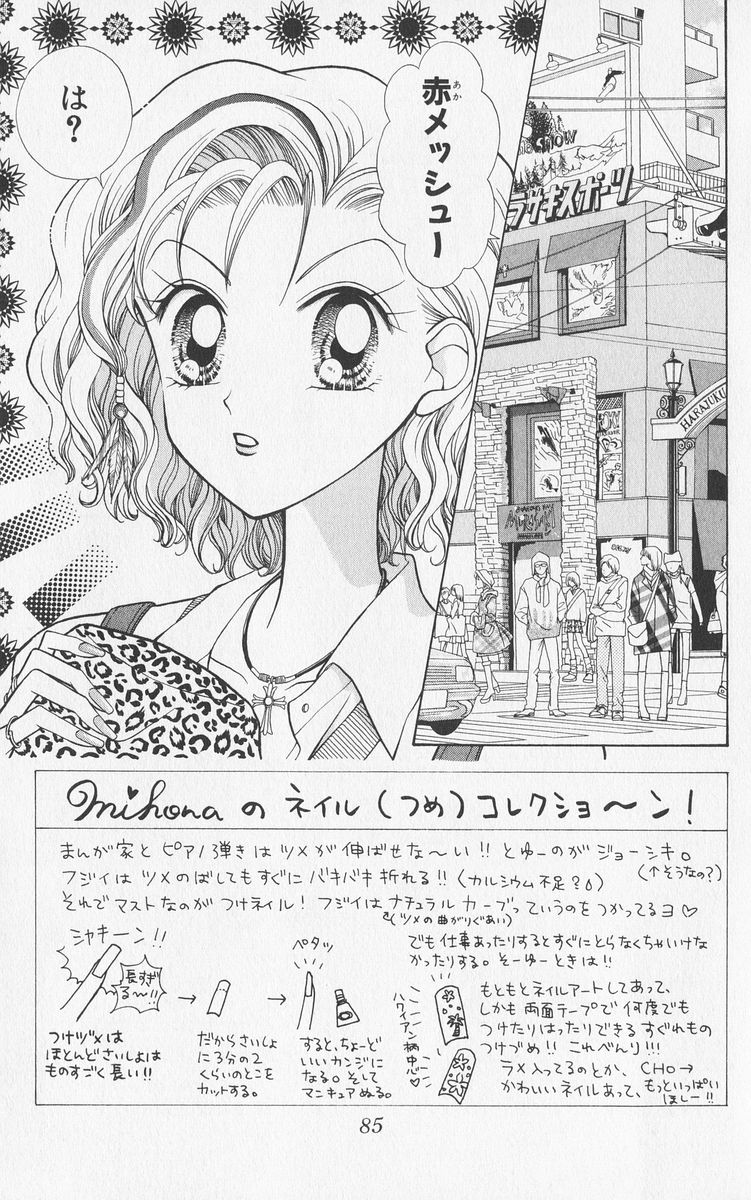 赤メッシュー
あか
は?
SNOW
ラサキスポーツ
HARAJUKU
mihonaの ネイル(つめ)コレクショ〜ン!
まんが家と ピアノ弾きは ツメが 伸ばせな〜い!! とゆーのがジョーシキ。
(↑そうなの?)
フジイは ツメのばしてもすぐに バキバキ 折れる!!(カルシウム不足?)
それで マストなのが つけネイル! フジイは ナチュラル カーブっていうのをつかってるヨ♡
(ツメの曲がりぐあい)
シャキーン!!
長すぎ
る〜!!
つけヅメは
ほとんどさいしょは
ものすごく長い!!
→
だからさいしょ
に3分の2
くらいのとこを
カットする。
→
ペタッ
すると、ちょーど
いいカンジに
なる。そして
マニキュアぬる。
でも仕事あったりするとすぐにとらなくちゃいけな
かったりする。そーゆーときは!!
ハワイアン柄中心♡
もともとネイルアートしてあって、
しかも 両面テープで 何度でも
つけたりはったりできる すぐれもの
つけづめ!! これべんり!!!
ラメ入ってるのとか、CHO→
かわいいネイルあって、もっといっぱい
ほしー!!
85